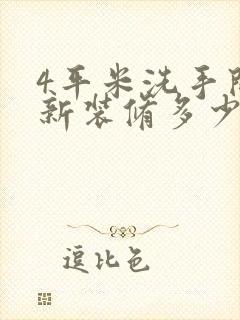 4平米洗手间
新装修多少
逗比色